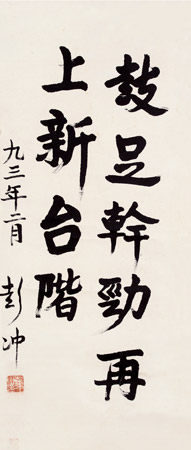 鼓足幹勁再
上新台階
九三年二月
彭冲